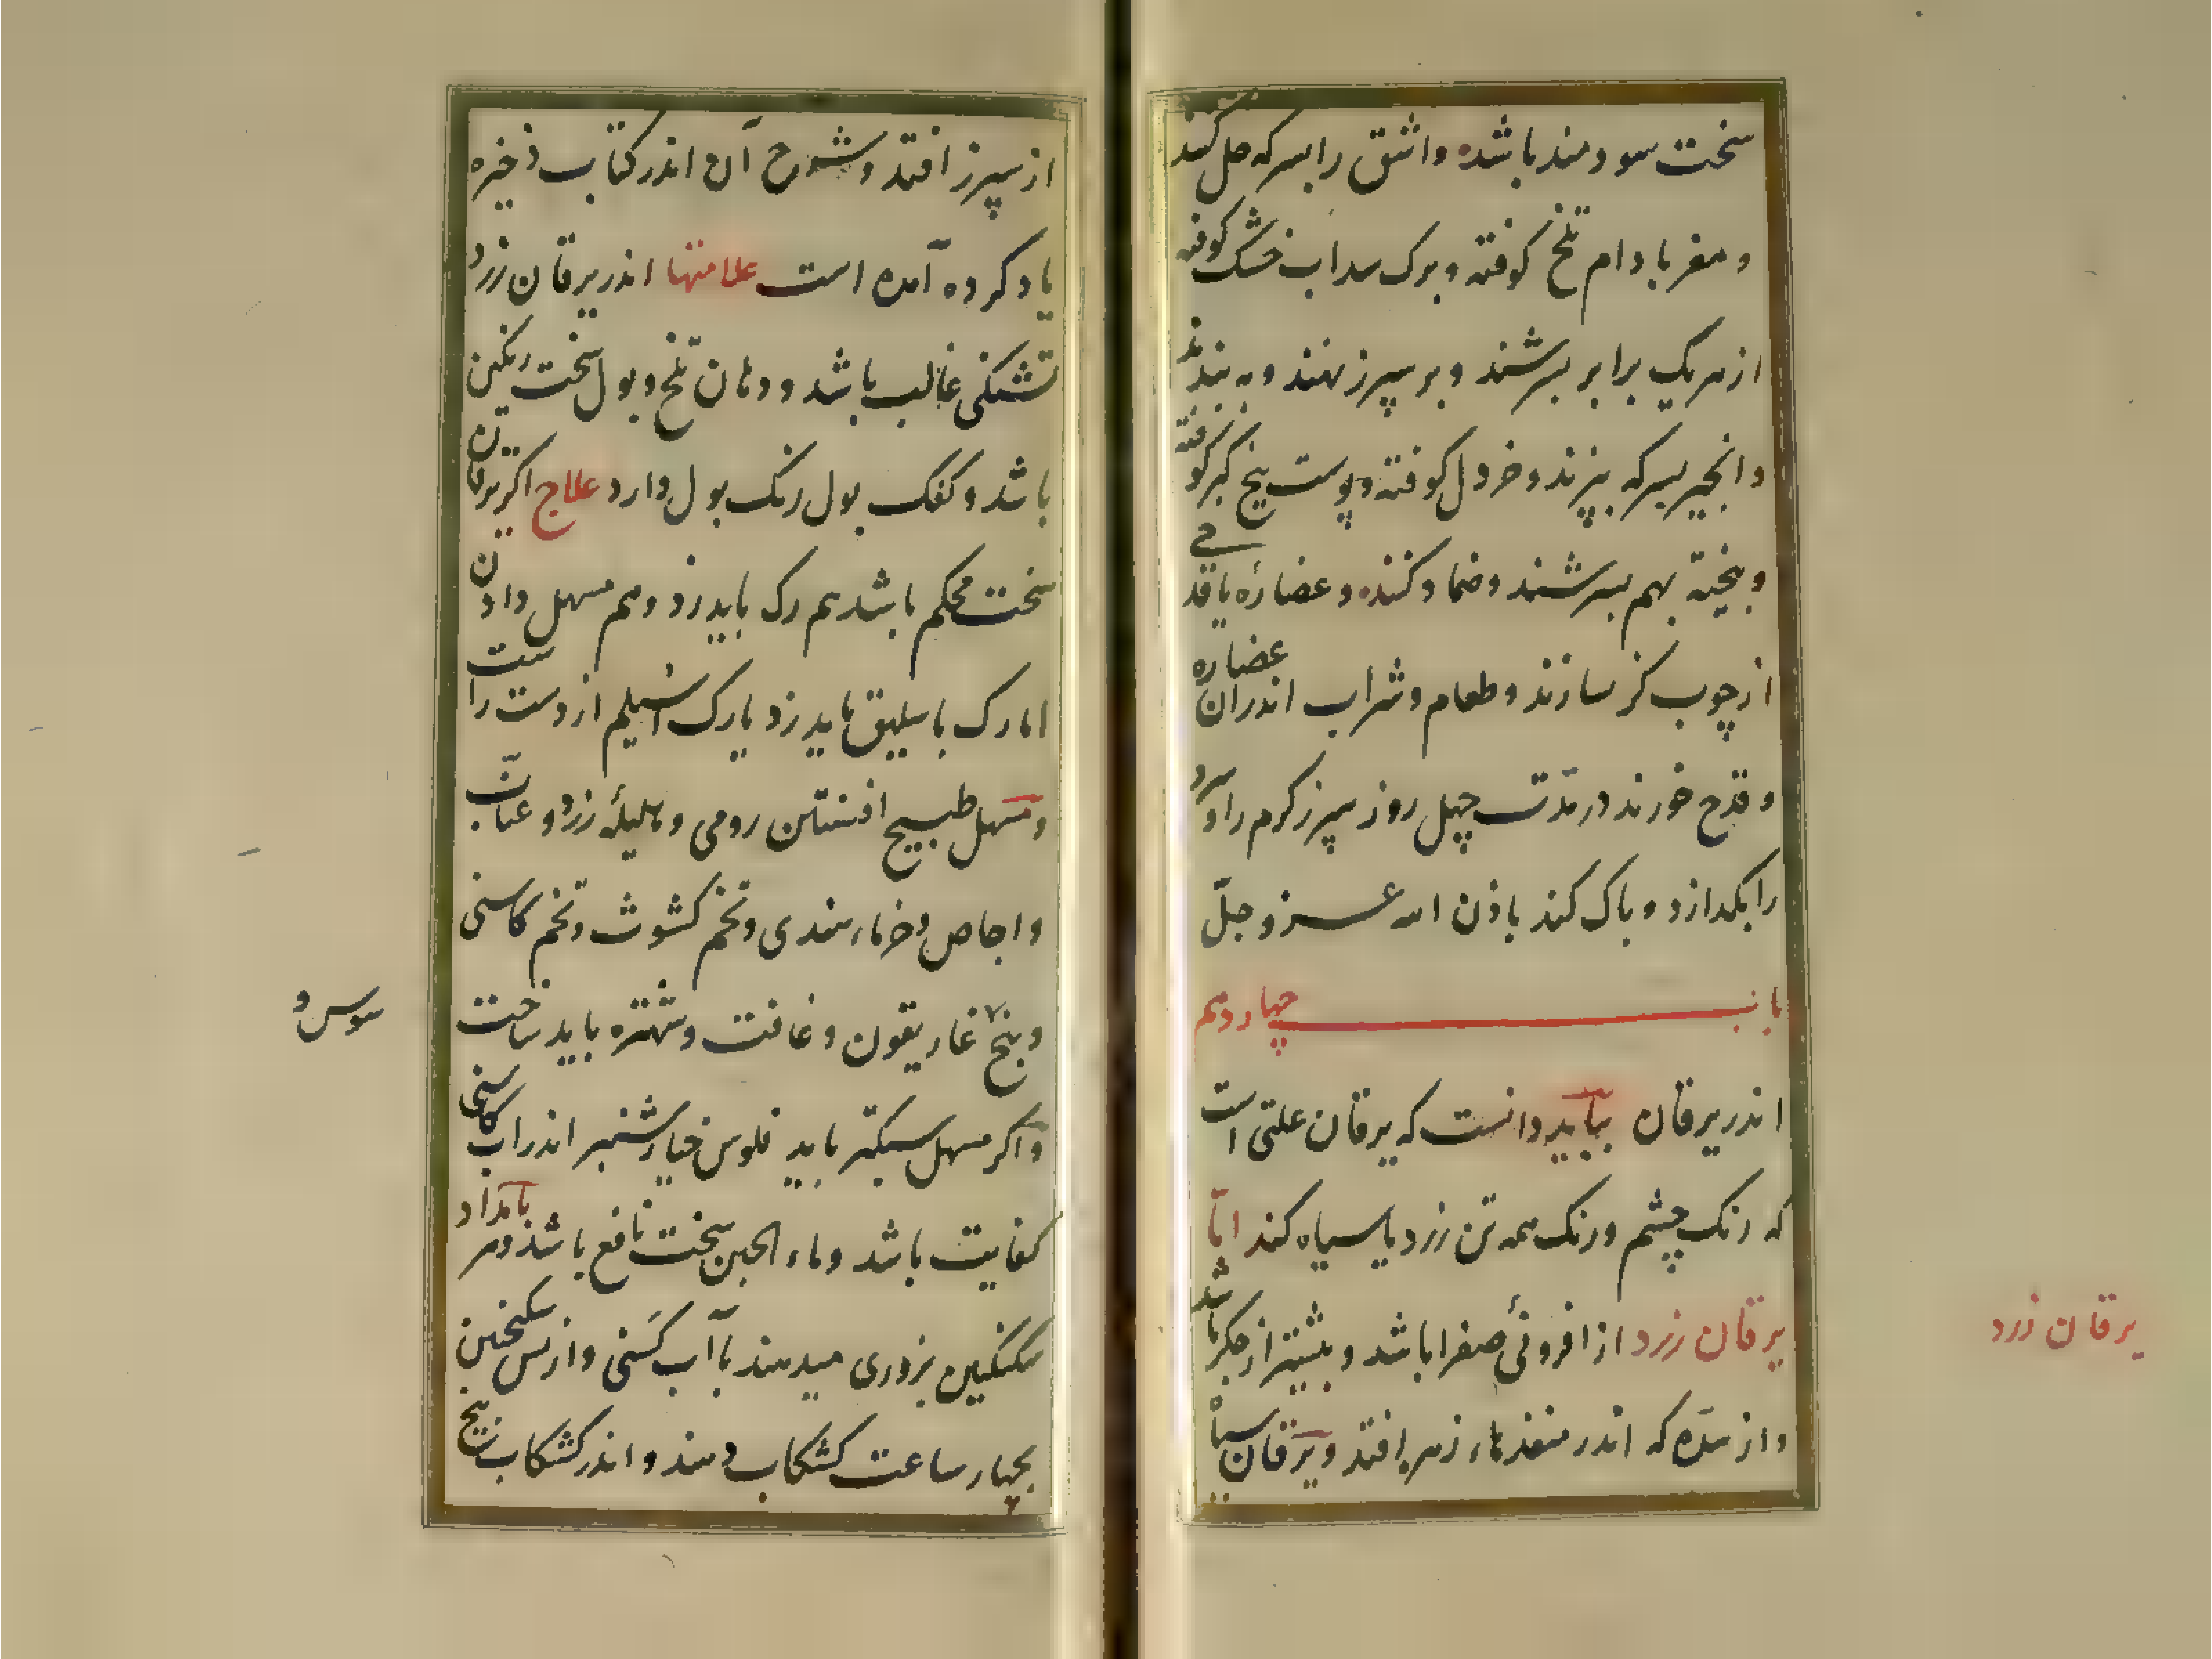 سخت سودمند باشد و اشق را بسرکه حل کنند
و مغز بادام تلخ کوفته و برک سداب خشک کوفته
از هریک برابر بسرشند و بر سپرز نهند و به بندند
و انجیر بسرکه بپزند و خردل کوفته و پوست بیخ کبر کوفته
و بیخته بهم بسرشند و ضماد کنند و عضارهٔ یا قدحی
از چوب کز سازند و طعام و شراب اندران عضاره
و قدح خورند در مدّت چهل روز سپرز کرم را و سرد
را بکدازد و پاک کند باذن الله عز و جلّ
باب چهاردهم
اندر یرقان بباید دانست که یرقان علتی است
که رنک چشم و رنک همه تن زرد یا سیاه کند امّا
یرقان زرد از افزونیٔ صفرا باشد و بیشتر از جکر باشد
و از سدّه که اندر منفذهاء زهره افتد و یرقان سیاه
یرقان زرد
از سپرز افتد و شرح آن اندر کتاب ذخیره
یاد کرده آمده است علامتها اندر یرقان زرد
تشنکی غالب باشد و دهان تلخ و بول سخت رنکین
باشد و کفک بول رنک بول دارد علاج اکر یرقان
سخت محکم باشد هم رک باید زد و هم مسهل دادن
اما رک باسلیق باید زد یا رک اسیلم از دست راست
و مسهل طبیخ افسنتین رومی و هلیلهٔ زرد و عنّاب
و اجاص و خرماء هندی و تخم کشوث و تخم کاسنی
و بیخ غاریقون و غافت و شهتره باید ساخت
سوس و
و اکر مسهل سبکتر باید فلوس خیارشنبر اندر اب کاسنی
کفایت باشد و ماء الجبن سخت نافع باشد و هر بامداد
سکنکبین بزوری میدهند با آب کسنی و از پس سکنجبین
بچهار ساعت کشکاب دهند و اندر کشکاب بیخ